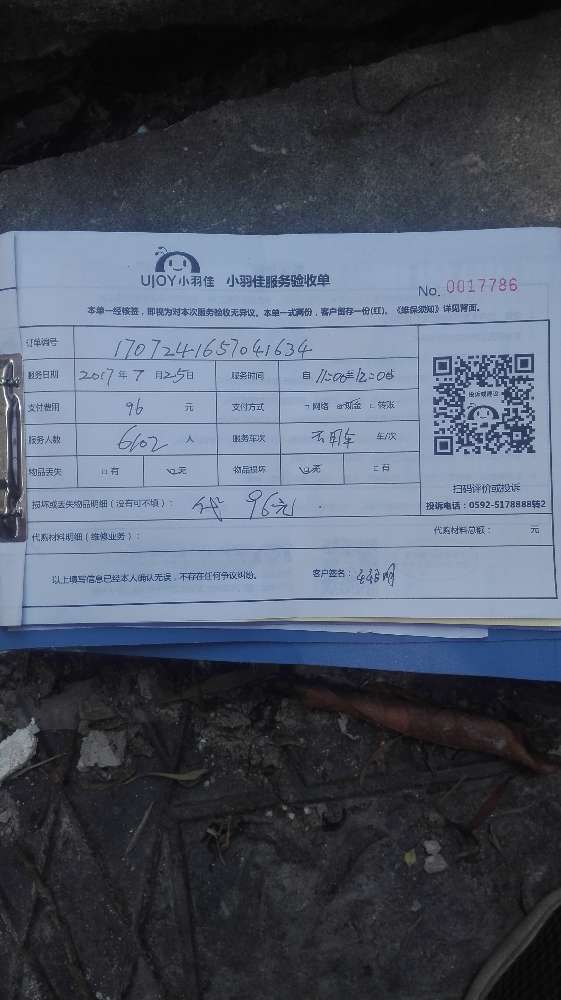 UJOY小羽佳 小羽佳服务验收单
No. 0017786
本单一经核签，即视为对本次服务验收无异议。本单一式两份，客户留存一份(红)。《维保须知》详见背面。
订单编号 1707241657041634
服务日期 2017年7月25日 服务时间 自 11:00至12:00
支付费用 96 元 支付方式 □网络 现金 □转账
服务人数 人 服务车次 不用车 车/次
物品丢失 □有 无 物品损坏 无 □有
损坏或丢失物品明细（没有可不填）： 96元
代购材料明细（维修业务）： 代购材料总额： 元
以上填写信息已经本人确认无误，不存在任何争议纠纷。 客户签名：
投诉或建议
扫码评价或投诉
投诉电话：0592-5178888转2